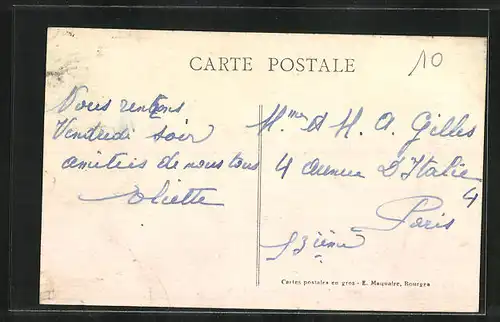 CARTE POSTALE
10
Nous rentrons
Vendredi soir
amitiés de nous tous
Mme et M. A. Gilles
4 avenue D'Italie
4
Paris
13ième
Cartes postales en gros - E. Maquaire, Bourges